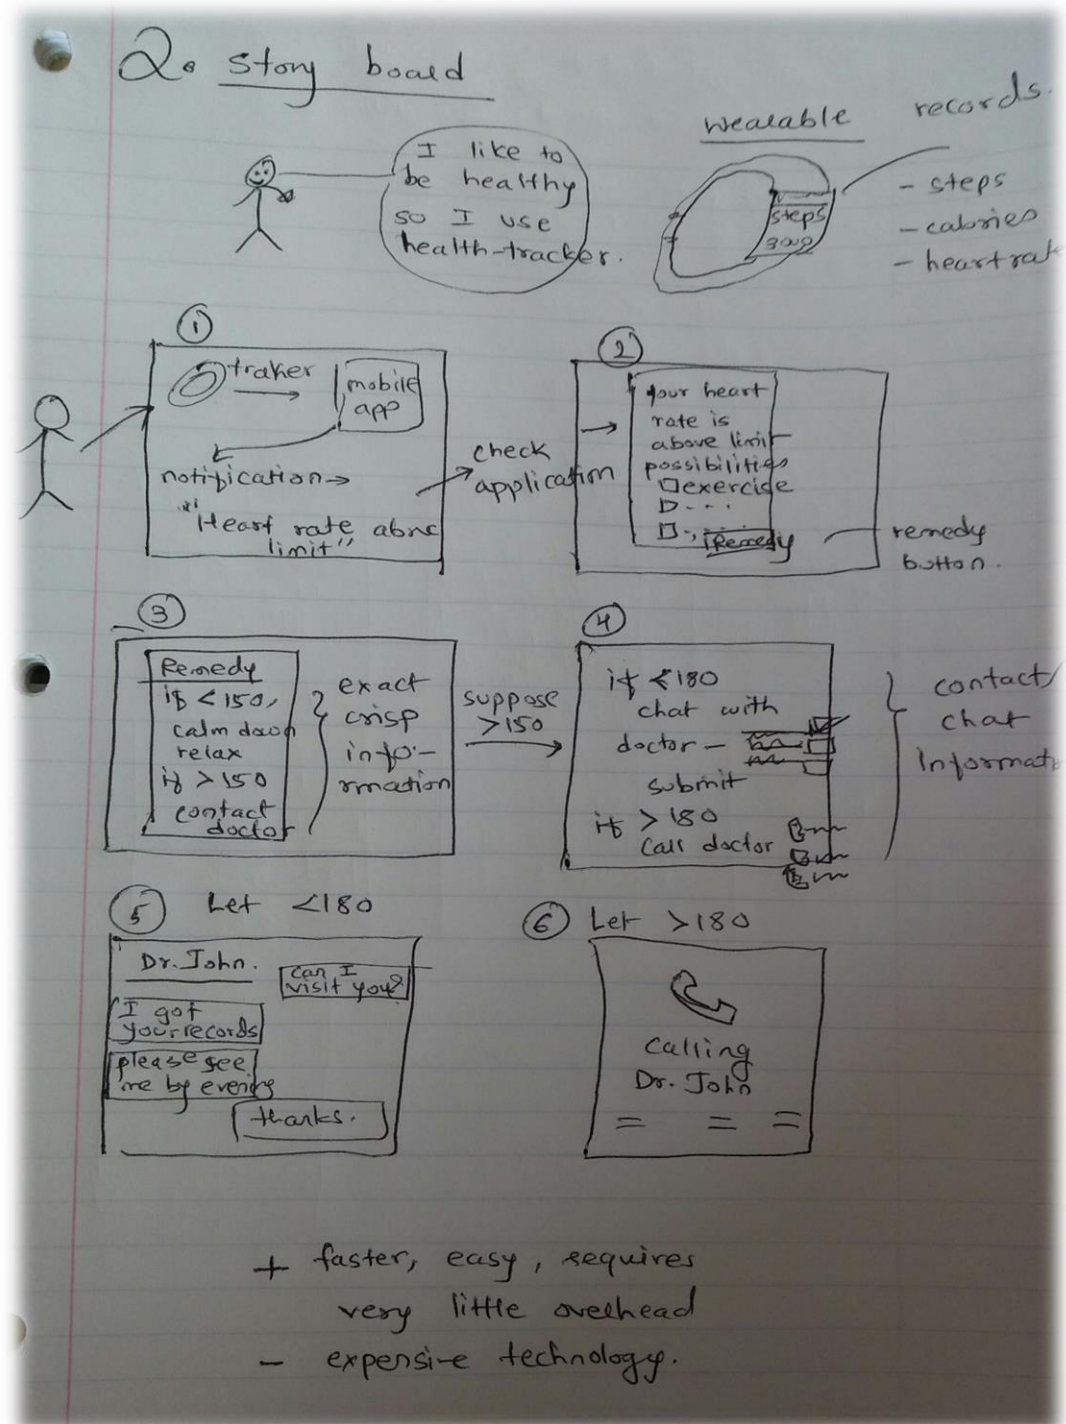 2. Story board
I like to
be healthy
so I use
health-tracker.
wearable
steps
records.
- steps
- calories
- heartrate
1
traker
mobile
app
notification→
"Heart rate above
limit"
check
application
2
your heart
rate is
above limit
possibilities
exercise
Remedy
remedy
button.
3
Remedy
if < 150,
calm down
relax
if > 150
contact
doctor
exact
crisp
info-
rmation
suppose
>150
4
if < 180
chat with
doctor -
submit
if > 180
Call doctor
contact/
chat
Informat
5 Let <180
Dr. John.
can I
visit you?
I got
your records
please see
me by evening
thanks.
6 Let >180
Calling
Dr. John
+ faster, easy, requires
very little overhead
- expensive technology.